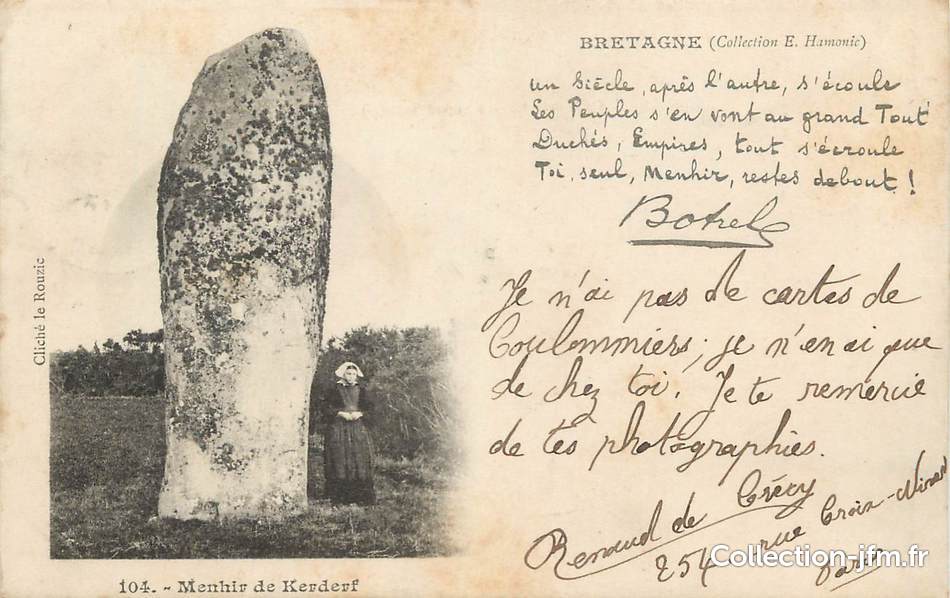 BRETAGNE (Collection E. Hamonic)
un Siècle, après l'autre, s'écoule
Les Peuples s'en vont au grand Tout
Duchés, Empires, tout s'écroule
Toi, seul, Menhir, restes debout !
Botrel
Je n'ai pas de cartes de
Coulommiers; je n'en ai que
de chez toi. Je te remercie
de tes photographies.
Renaud de Crécy
254 rue Croix-Nivert
Paris
Cliché le Rouzic
104. - Menhir de Kerderf
Collection-jfm.fr